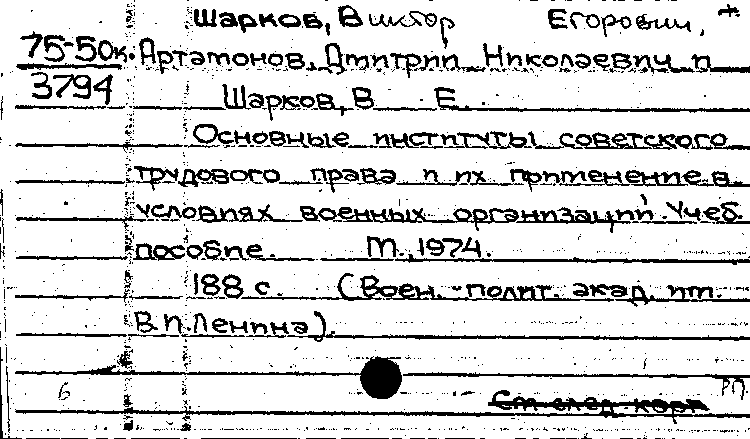 Шарков, Виктор Егорович, *
75-50к. Артамонов, Дмитрий Николаевич и
3794 Шарков, В Е.
Основные институты советского
трудового права и их применение в
условиях военных организаций. Учеб.
пособие. М., 1974.
188 с. (Воен.-полит. акад. им.
В.И.Ленина).
6 РП
См след. карт